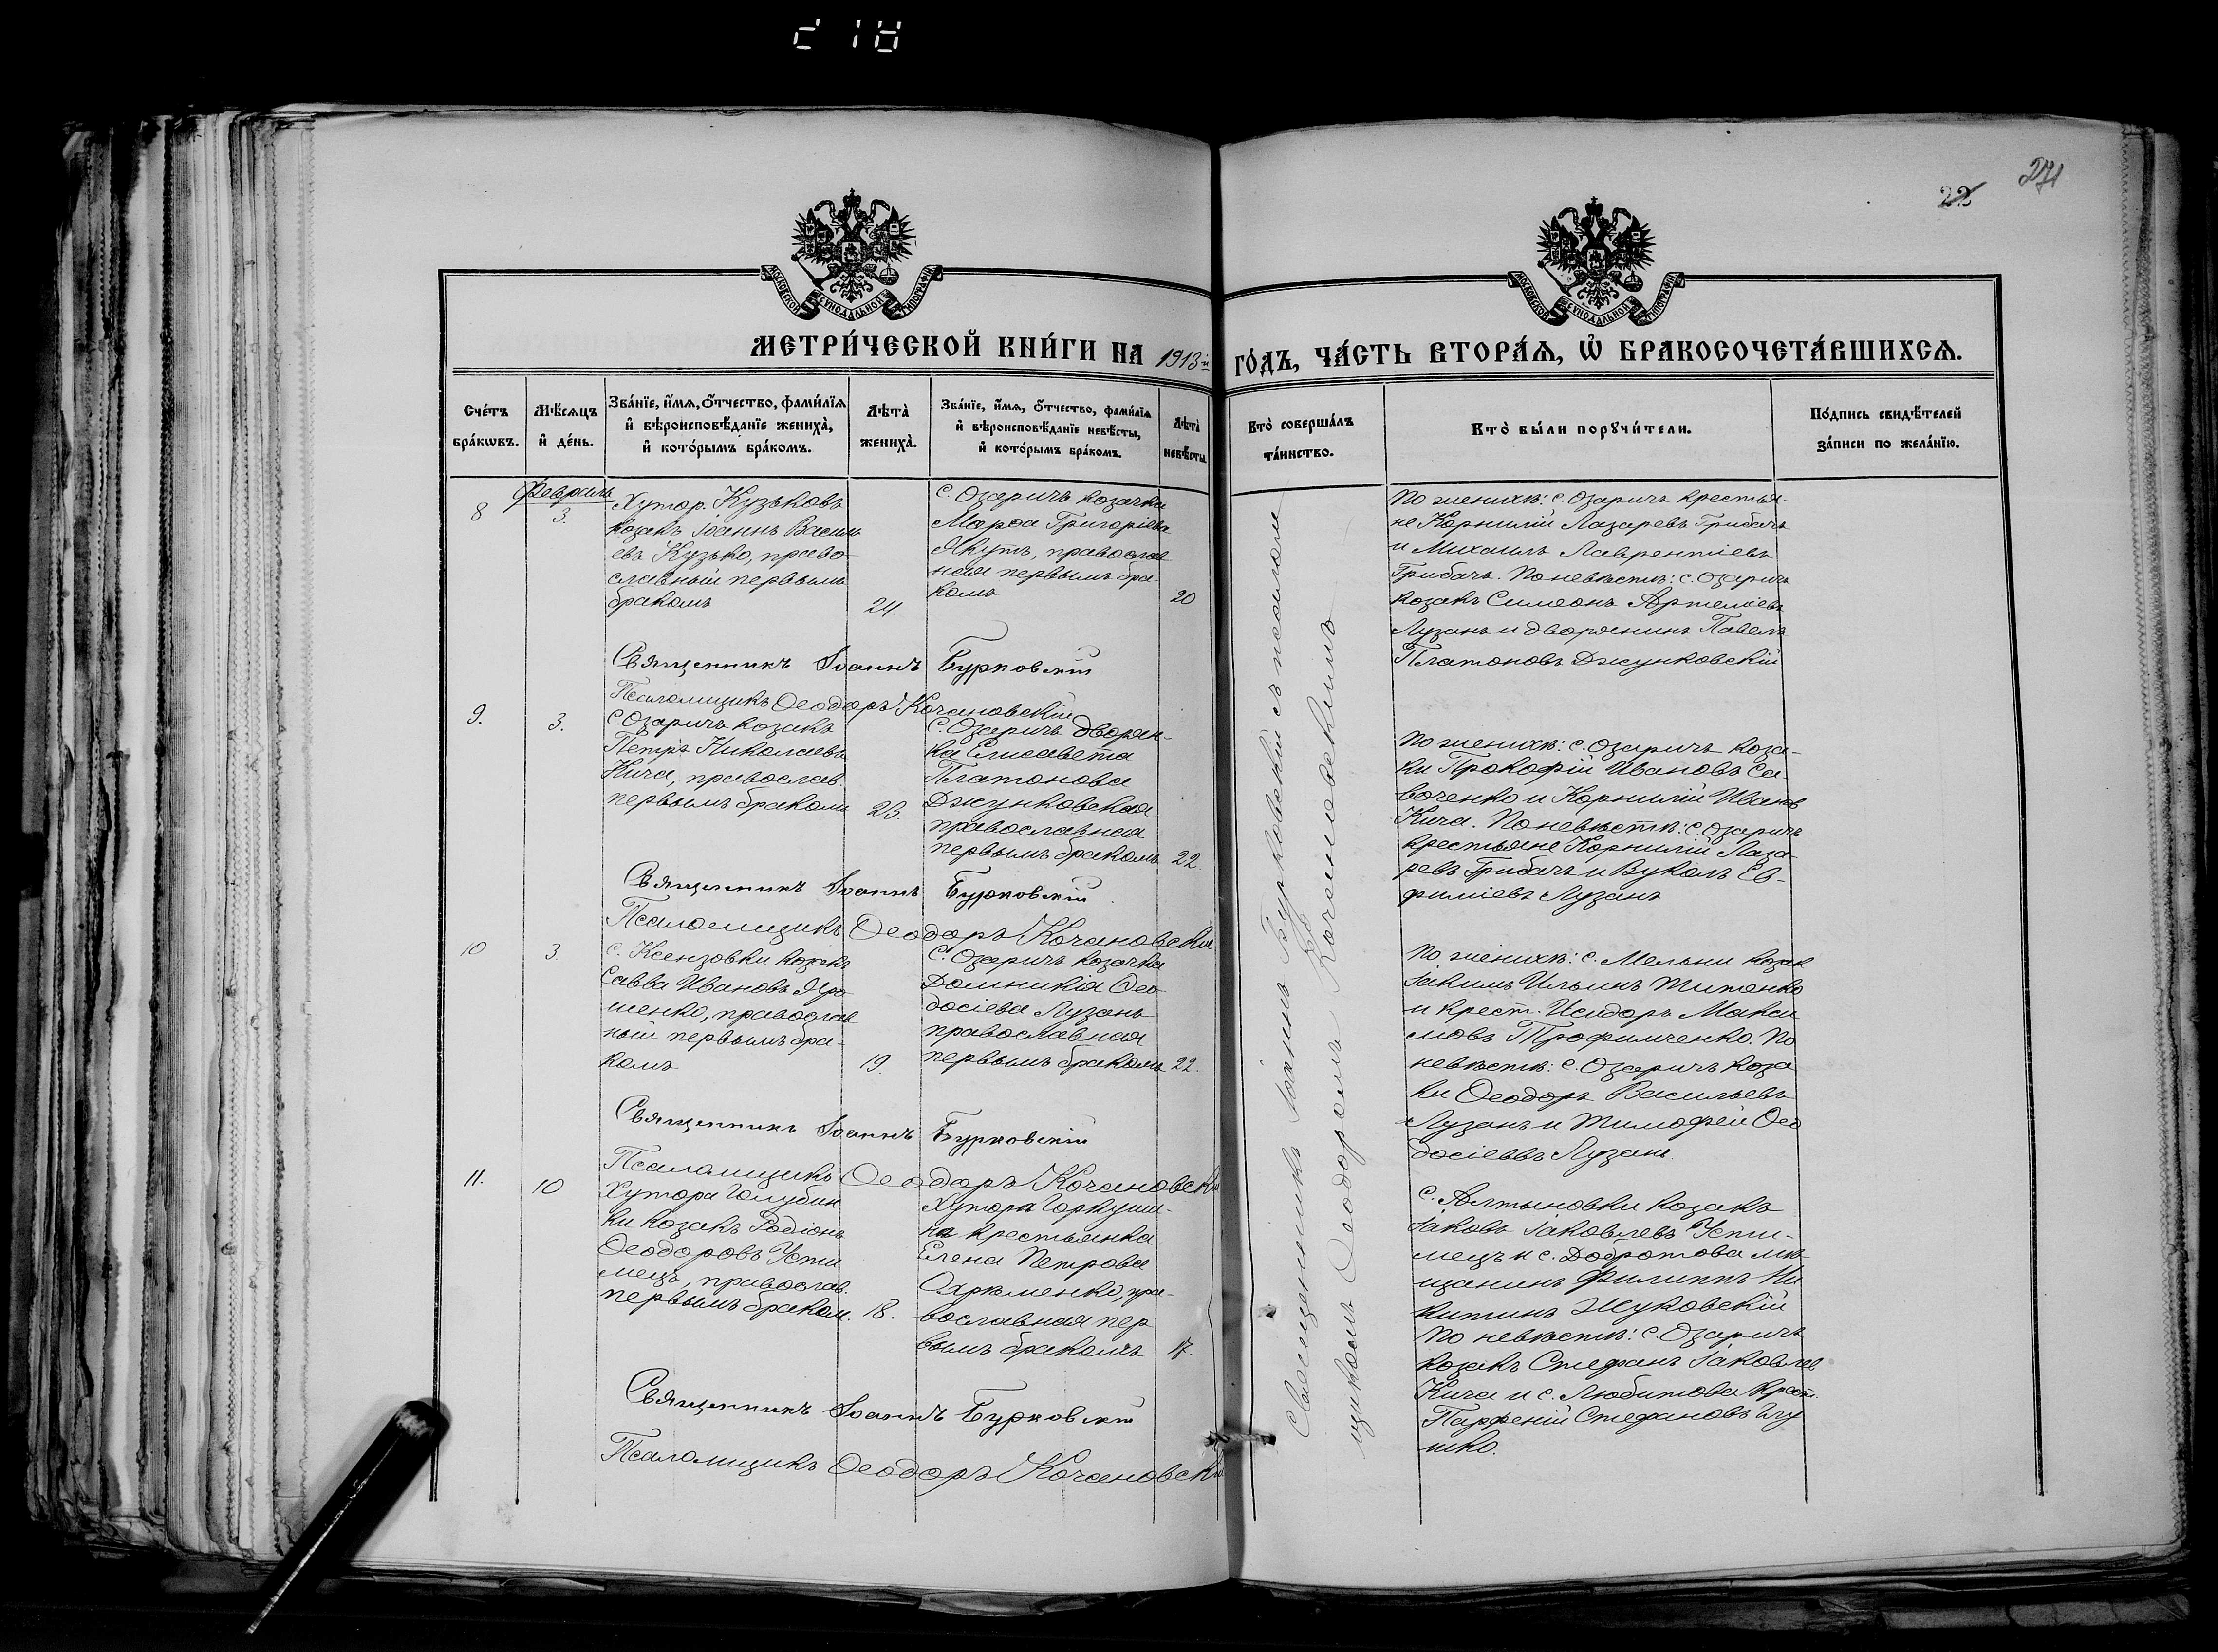 22
271
МОСКОВСКОЙ СѴНОДАЛЬНОЙ ТИПОГРАФІИ
МОСКОВСКОЙ СѴНОДАЛЬНОЙ ТИПОГРАФІИ
МЕТРИ́ЧЕСКОЙ КНИ́ГИ НА 1913-й ГО́ДЪ, ЧА́СТЬ ВТОРА́Ѧ, Ѽ БРАКОСОЧЕТА́ВШИХСѦ.
Сче́тъ
бра́кѡвъ.
Мѣ́сѧцъ
и҆ де́нь.
Зва́нїе, и҆́мѧ, ѻ҆́тчество, фами́лїѧ
и҆ вѣроисповѣ́данїе жениха̀,
и҆ кото́рымъ бра́комъ.
Лѣта̀
жениха̀.
Зва́нїе, и҆́мѧ, ѻ҆́тчество, фами́лїѧ
и҆ вѣроисповѣ́данїе невѣ́сты,
и҆ кото́рымъ бра́комъ.
Лѣта̀
невѣ́сты.
Кто̀ соверша́лъ
та́инство.
Кто̀ бы́ли порꙋчи́тели.
По́дпись свидѣ́телей
за́писи по жела́нїю.
Февраль
8
3.
Хутор. Кузьковъ
козакъ Іоаннъ Василь
евъ Кузько, право-
славный первымъ
бракомъ
24
С. Озаричъ козачка
Марѳа Григоріева
Якутъ, православ
ная первымъ бра
комъ
20
По женихѣ: с. Озаричъ крестья-
не Корнилій Лазаревъ Грибачъ
и Михаилъ Лаврентіевъ
Грибачъ. По невѣстѣ: с. Озаричъ
козакъ Симеонъ Артеміевъ
Лузанъ и дворянинъ Павелъ
Платоновъ Джунковскій
Священникъ Іоаннъ Бурковскій
Псаломщикъ Ѳеодоръ Кочановскій
9.
3.
С. Озаричъ козакъ
Петръ Николаевъ
Кича, православ.
первымъ бракомъ
23.
С. Озаричъ дворян-
ка Елисавета
Платонова
Джунковская
православная
первымъ бракомъ
22.
По женихѣ: с. Озаричъ коза-
ки Прокофій Ивановъ Са
воченко и Корнилій Ивановъ
Кича. По невѣстѣ: с. Озаричъ
крестьяне Корнилій Лаза-
ревъ Грибачъ и Вуколъ Ев-
фиміевъ Лузанъ
Священникъ Іоаннъ Бурковскій
Псаломщикъ Ѳеодоръ Кочановскій
10
3.
С. Ксензовки козакъ
Савва Ивановъ Яро
шенко, православ
ный первымъ бра-
комъ
19.
С. Озаричъ козачка
Домникія Ѳео
досіева Лузанъ
православная
первымъ бракомъ
22.
По женихѣ: с. Мельни козак
Іакимъ Ильинъ Титенко
и крест. Исидоръ Макси
мовъ Трофимченко. По
невѣстѣ: с. Озаричъ коза
ки Ѳеодоръ Васильевъ
Лузанъ и Тимофей Ѳео
досіевъ Лузанъ.
Священникъ Іоаннъ Бурковскій
Псаломщикъ Ѳеодоръ Кочановскій
11.
10
Хутора Голубин
ки козакъ Родіонъ
Ѳеодоровъ Усти
мецъ, православ.
первымъ браком.
18.
Хутора Горкуши-
на крестьянка
Елена Петрова
пра-
вославная пер
вымъ бракомъ
17.
С. Алтыновки козакъ
Іаковъ Іаковлевъ Усти-
мецъ и с. Добротова мѣ
щанинъ Филиппъ Ни
китинъ Жуковскій
По невѣстѣ: с. Озаричъ
козакъ Стефанъ Іаковлев
Кича и с. Любитова крест.
Парфеній Стефановъ
Священникъ Іоаннъ Бурковскій
Псаломщикъ Ѳеодоръ Кочановскій
Священникъ Іоаннъ Бурковскій съ псалом
щикомъ Ѳеодоромъ Кочановскимъ